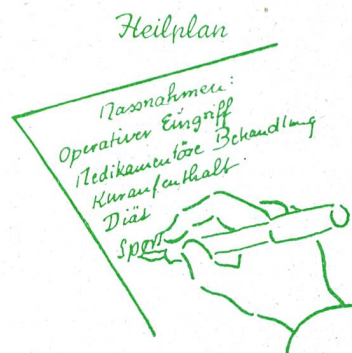 Heilplan
Massnahmen:
Operativer Eingriff
Medikamentöse Behandlung
Kuraufenthalt
Diät
Sport